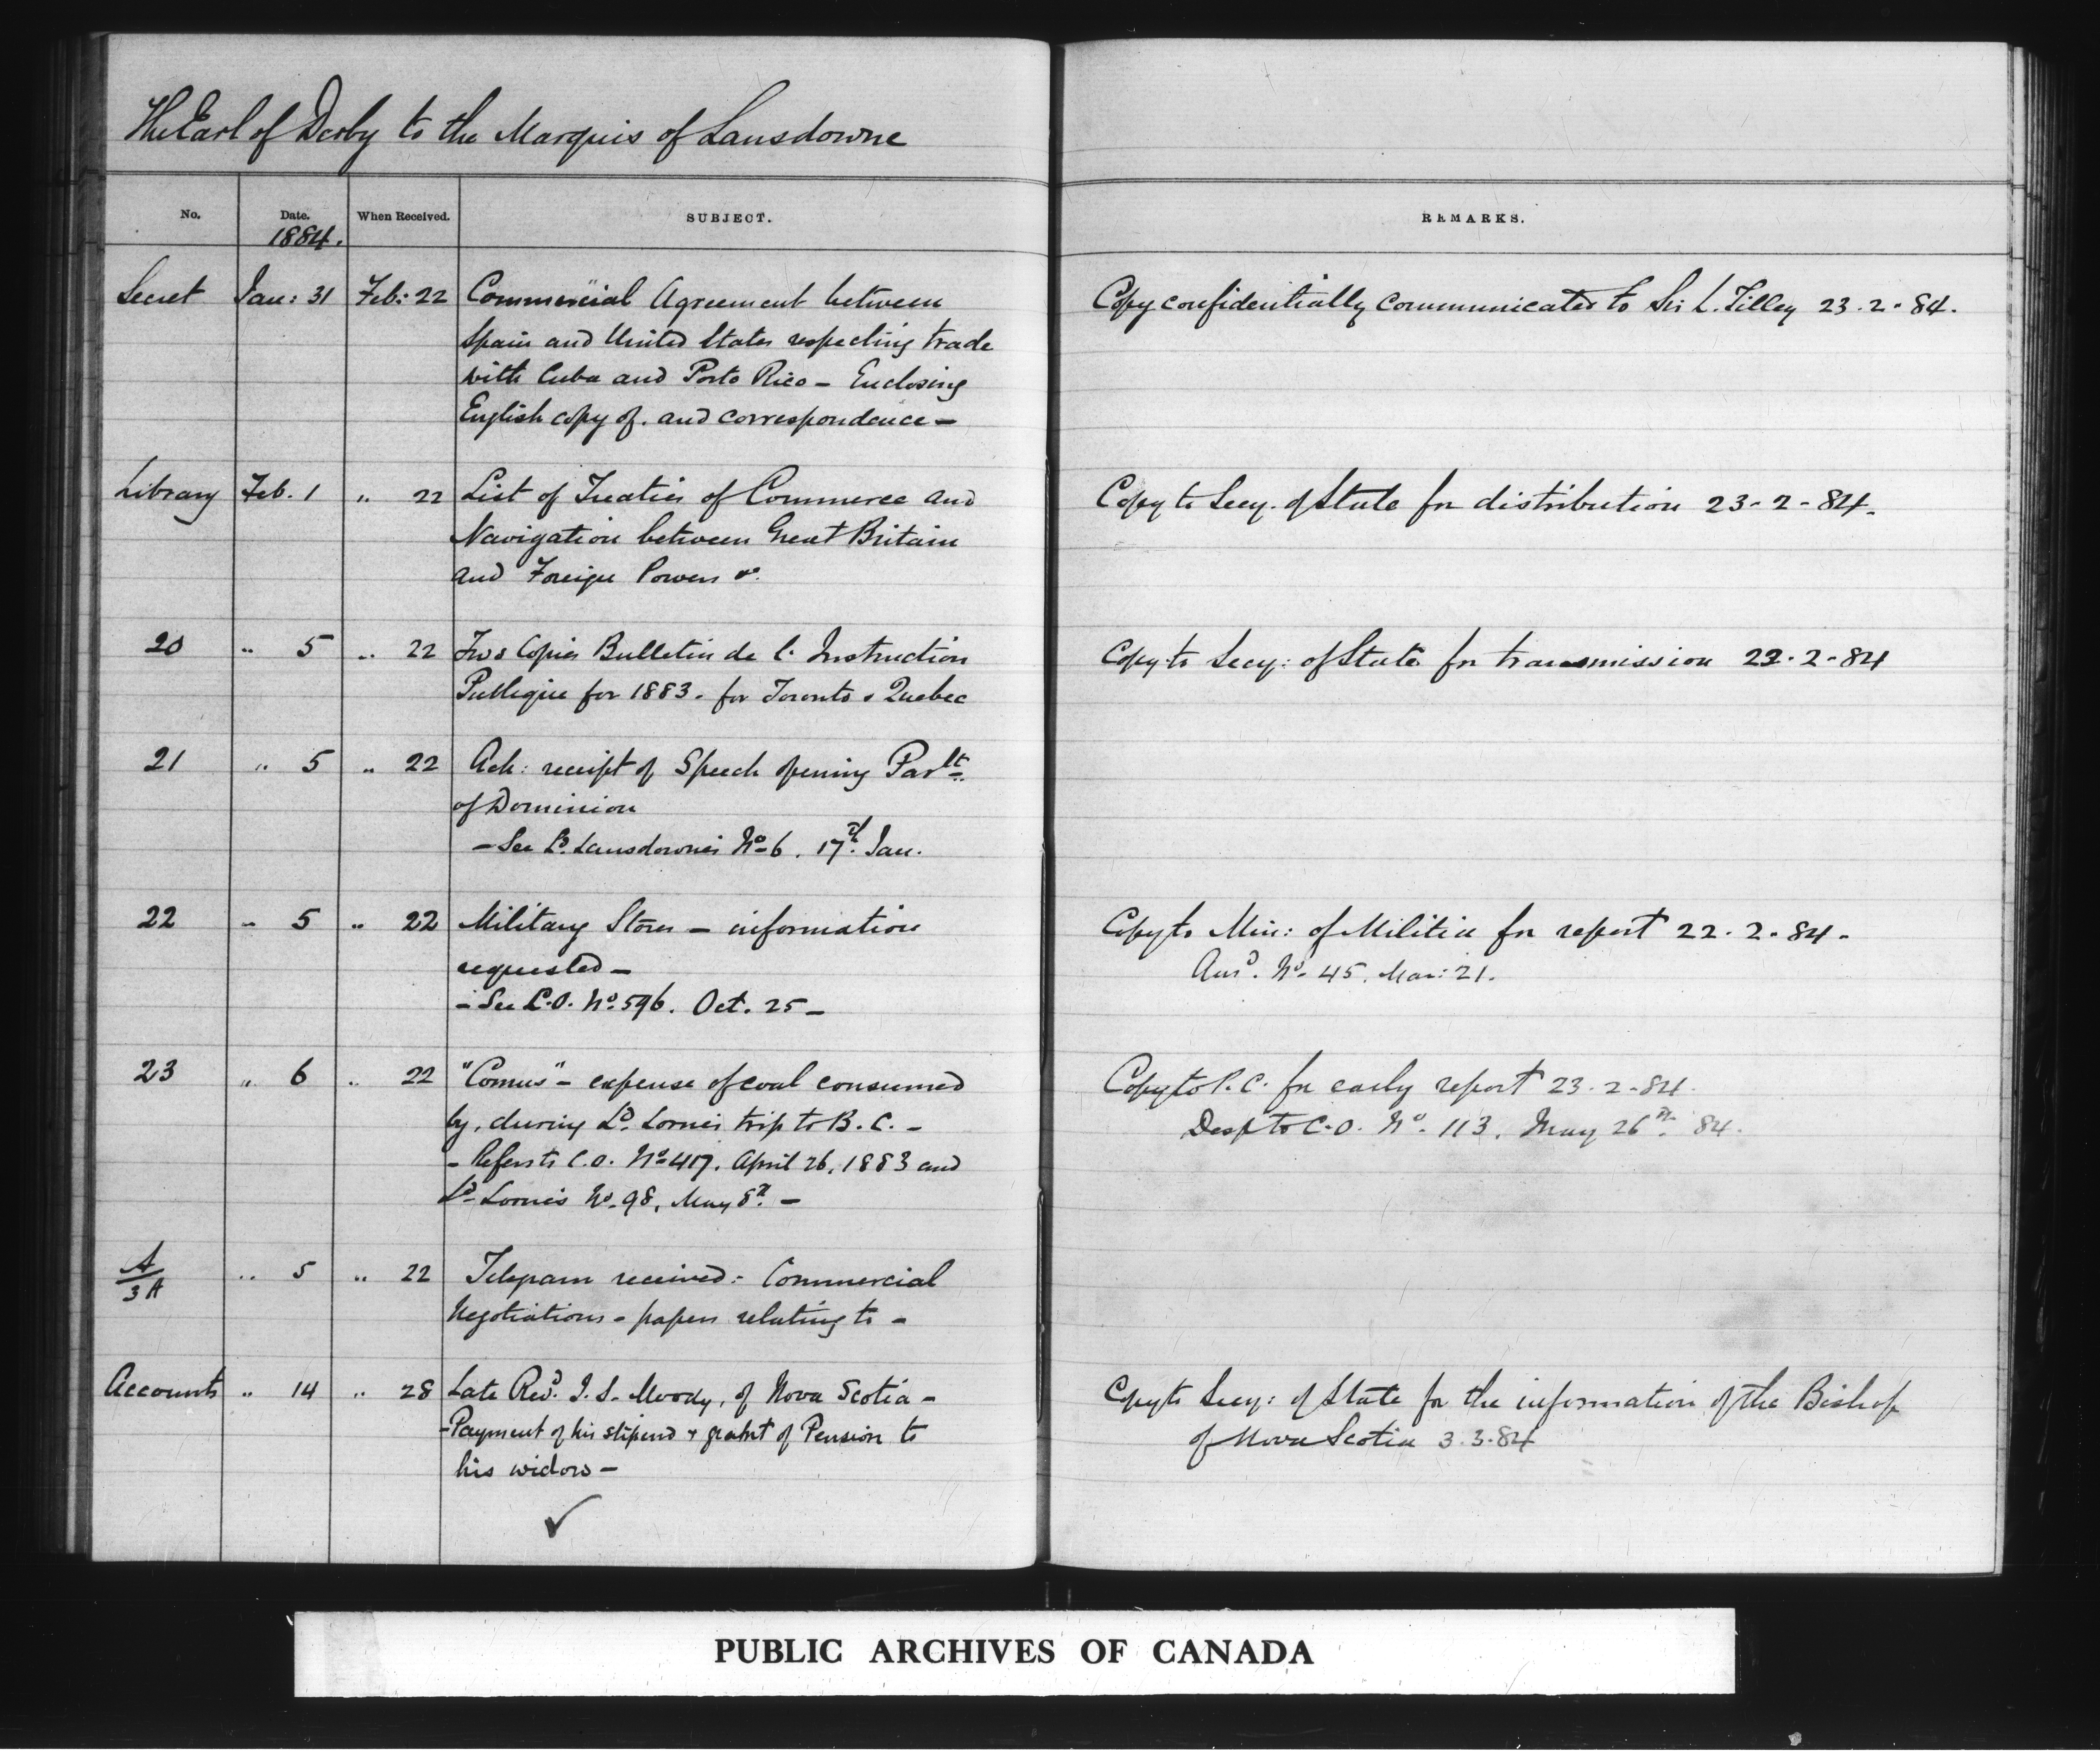 The Earl of Derby to the Marquis of Lansdowne
No. Date. When Received. SUBJECT. REMARKS.
1884.
Secret Jan: 31 Feb: 22 Commercial Agreement between Copy confidentially communicated to Sir L. Tilley 23.2-84.
Spain and United States respecting trade
with Cuba and Porto Rico - Enclosing
English copy of. and correspondence -
Library Feb. 1 " 22 List of Treaties of Commerce and Copy to Secy. of State for distribution 23-2-84.
Navigation between Great Britain
and Foreign Powers &c.
20 " 5 " 22 Two Copies Bulletin de l' Instruction Copy to Secy: of State for transmission 22.2-84
Publique for 1883. for Toronto & Quebec
21 " 5 " 22 Ack: receipt of Speech opening Parlt.
of Dominion
- See Ld. Lansdowne's No. 6. 17th. Jan.
22 " 5 " 22 Military Stores - information Copy to Min: of Militia for report 22.2.84-
requested - Ansd. No. 45. Mar: 21.
- See C.O. No. 596. Oct. 25 -
23 " 6 " 22 "Comus" - expense of coal consumed Copy to P.C. for early report 23.2-84.
by, during Ld. Lorne's trip to B.C. - Desp to C.O. No. 113. May 26th. 84.
- Refers to C.O. No. 417. April 26. 1883 and
Ld. Lorne's No. 98, May 8th. -
A/3A " 5 " 22 Telegram received: Commercial
Negotiations - papers relating to -
Accounts " 14 " 28 Late Revd. J. S. Moody, of Nova Scotia - Copy to Secy: of State for the information of the Bishop
- Payment of his stipend & grant of Pension to of Nova Scotia 3.3.84
his widow -
PUBLIC ARCHIVES OF CANADA